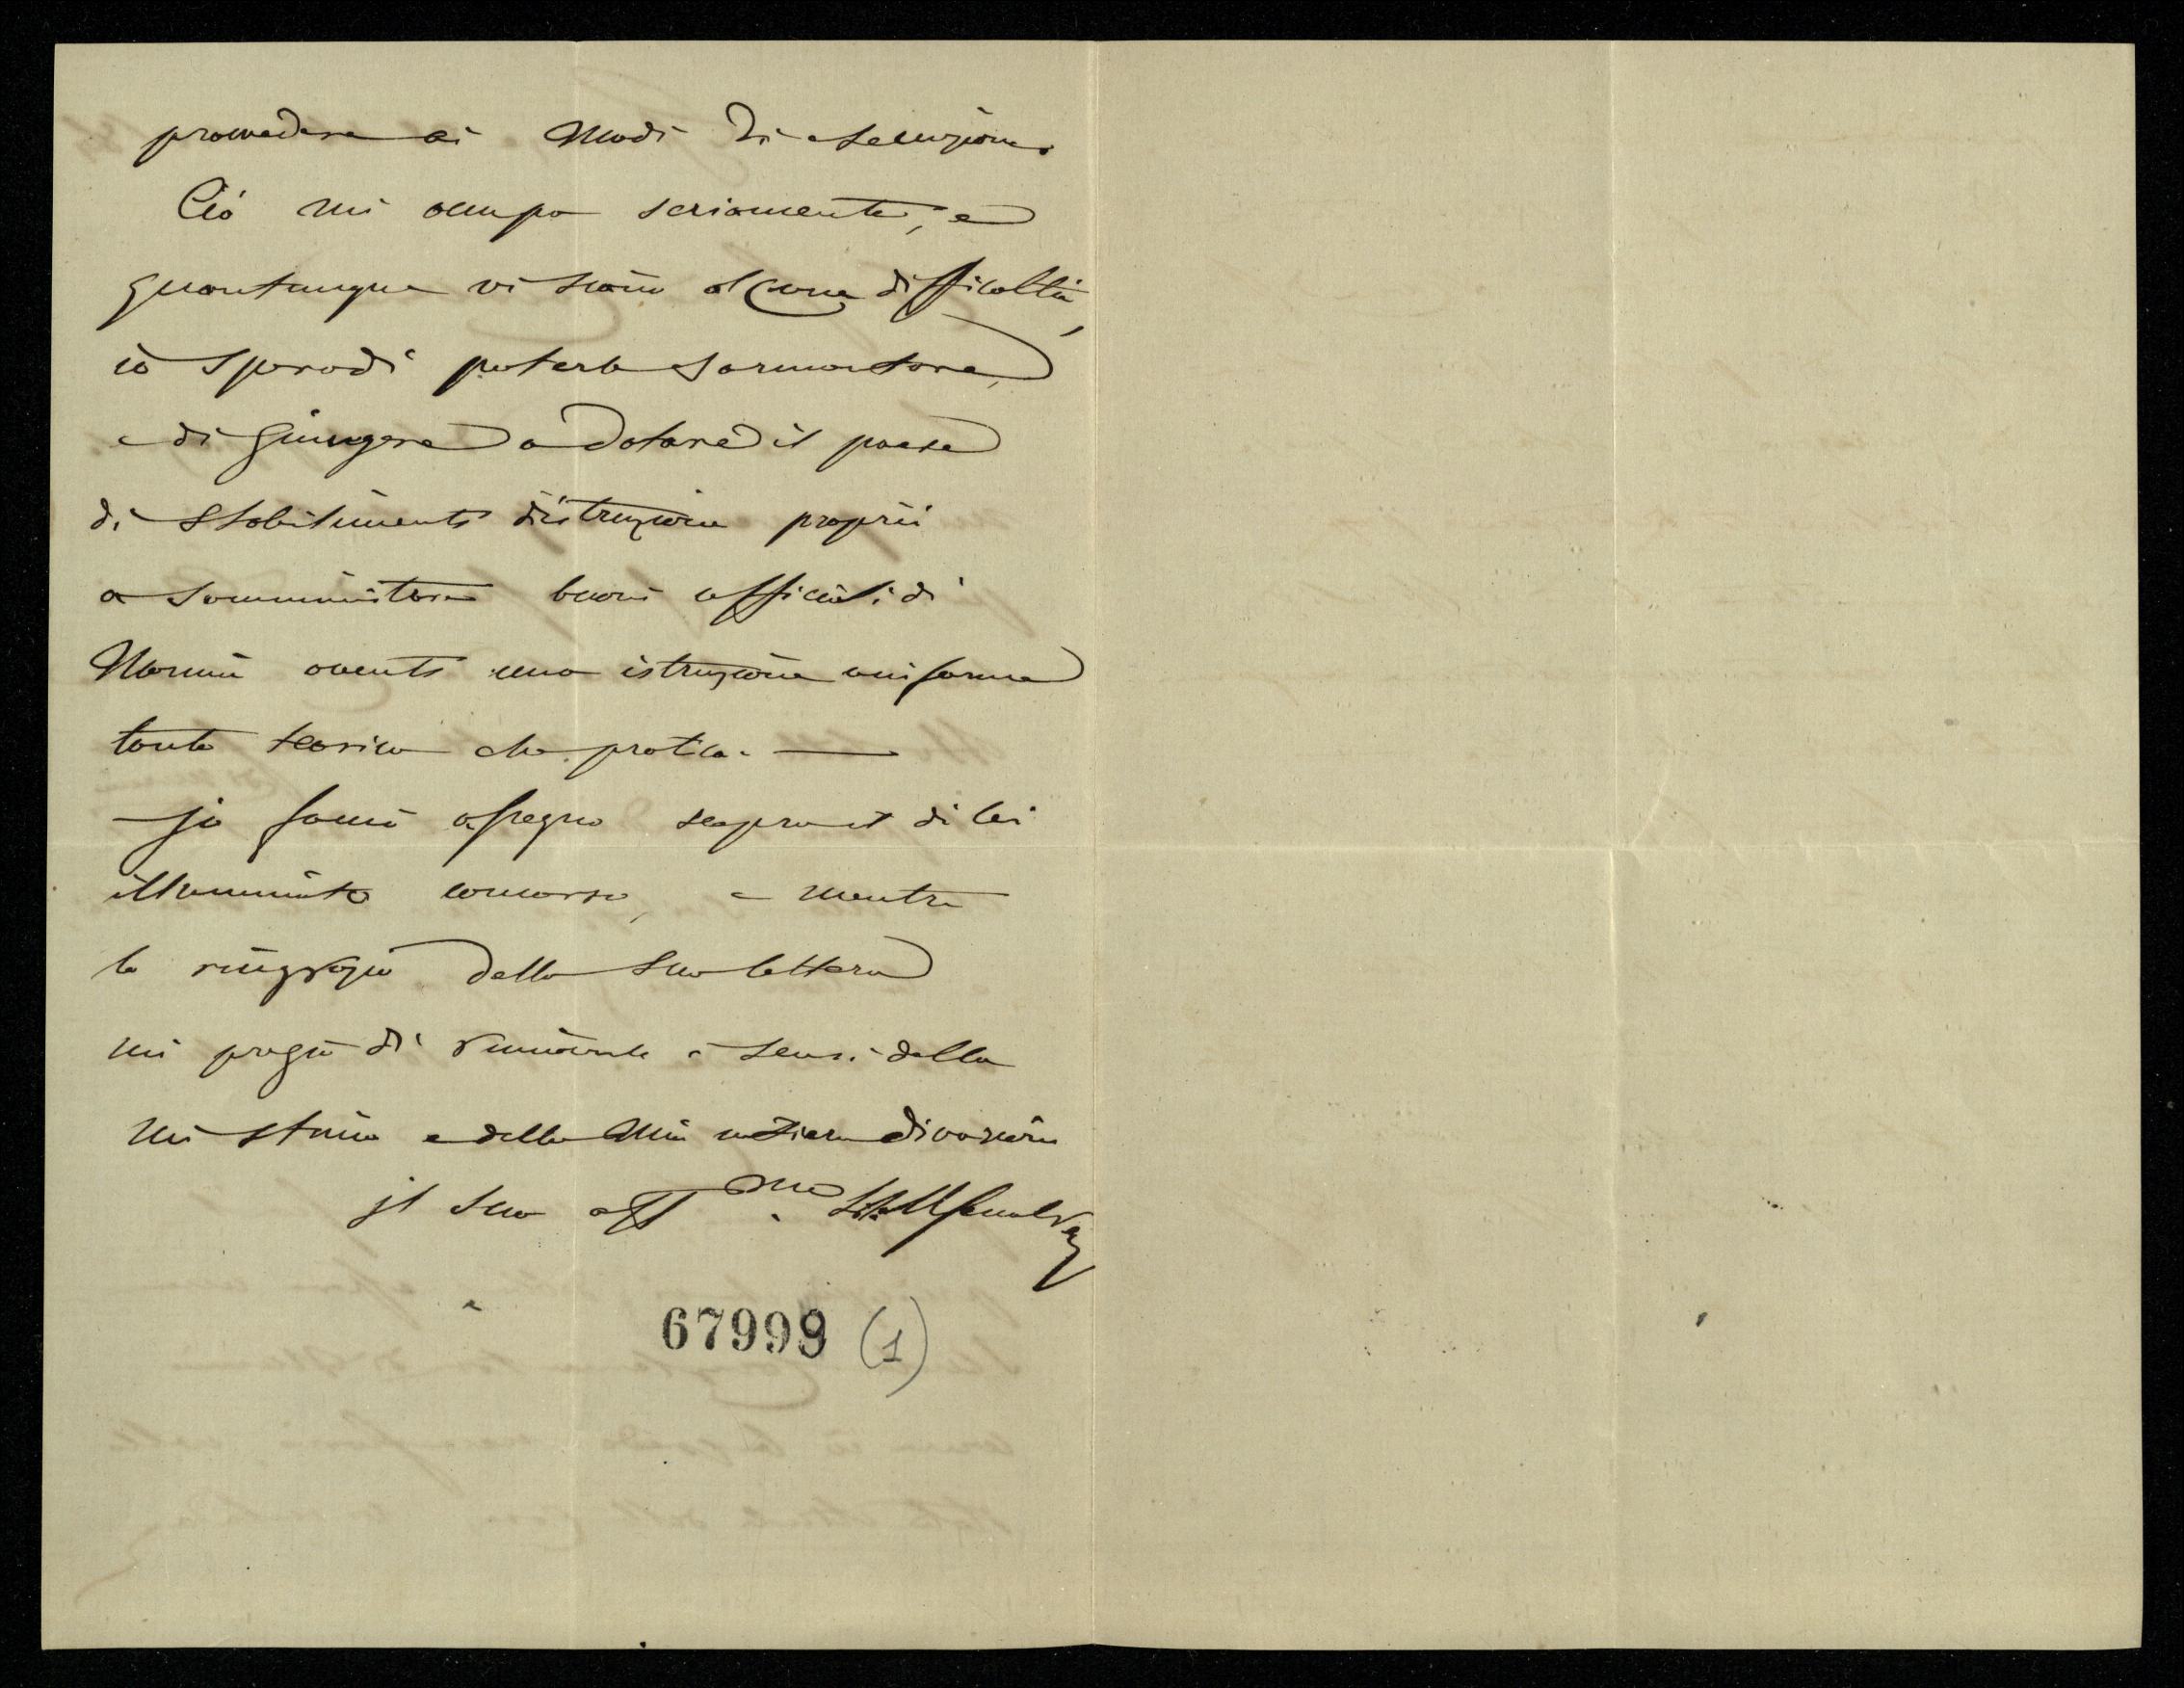 provvedere ai modi di esecuzione.
Ciò mi occupa seriamente, e
quantunque vi siano alcune difficoltà,
io spero di poterle sormontare,
e di giungere a dotare il paese
di stabilimenti d'istruzione proprii
a somministrare buoni ufficiali di
Marina aventi una istruzione uniforme
tanto teorica che pratica. —
Io faccio assegno sopra il di lei
illuminato concorso, e mentre
la ringrazio della sua lettera
mi pregio di rinnovarle i sensi della
mia stima e della mia divozione
il suo aff.mo
67999 (1)